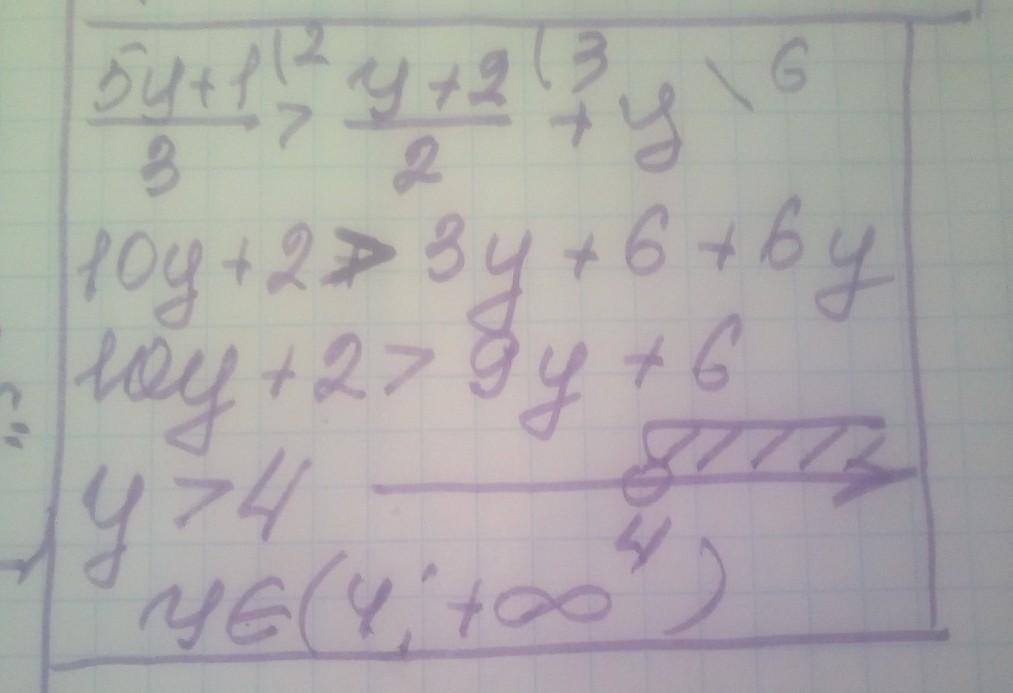 (5y+1)/3 (2 > (y+2)/2 (3 + y \ 6
10y + 2 > 3y + 6 + 6y
10y + 2 > 9y + 6
y > 4
4
y ∈ (4; +∞)